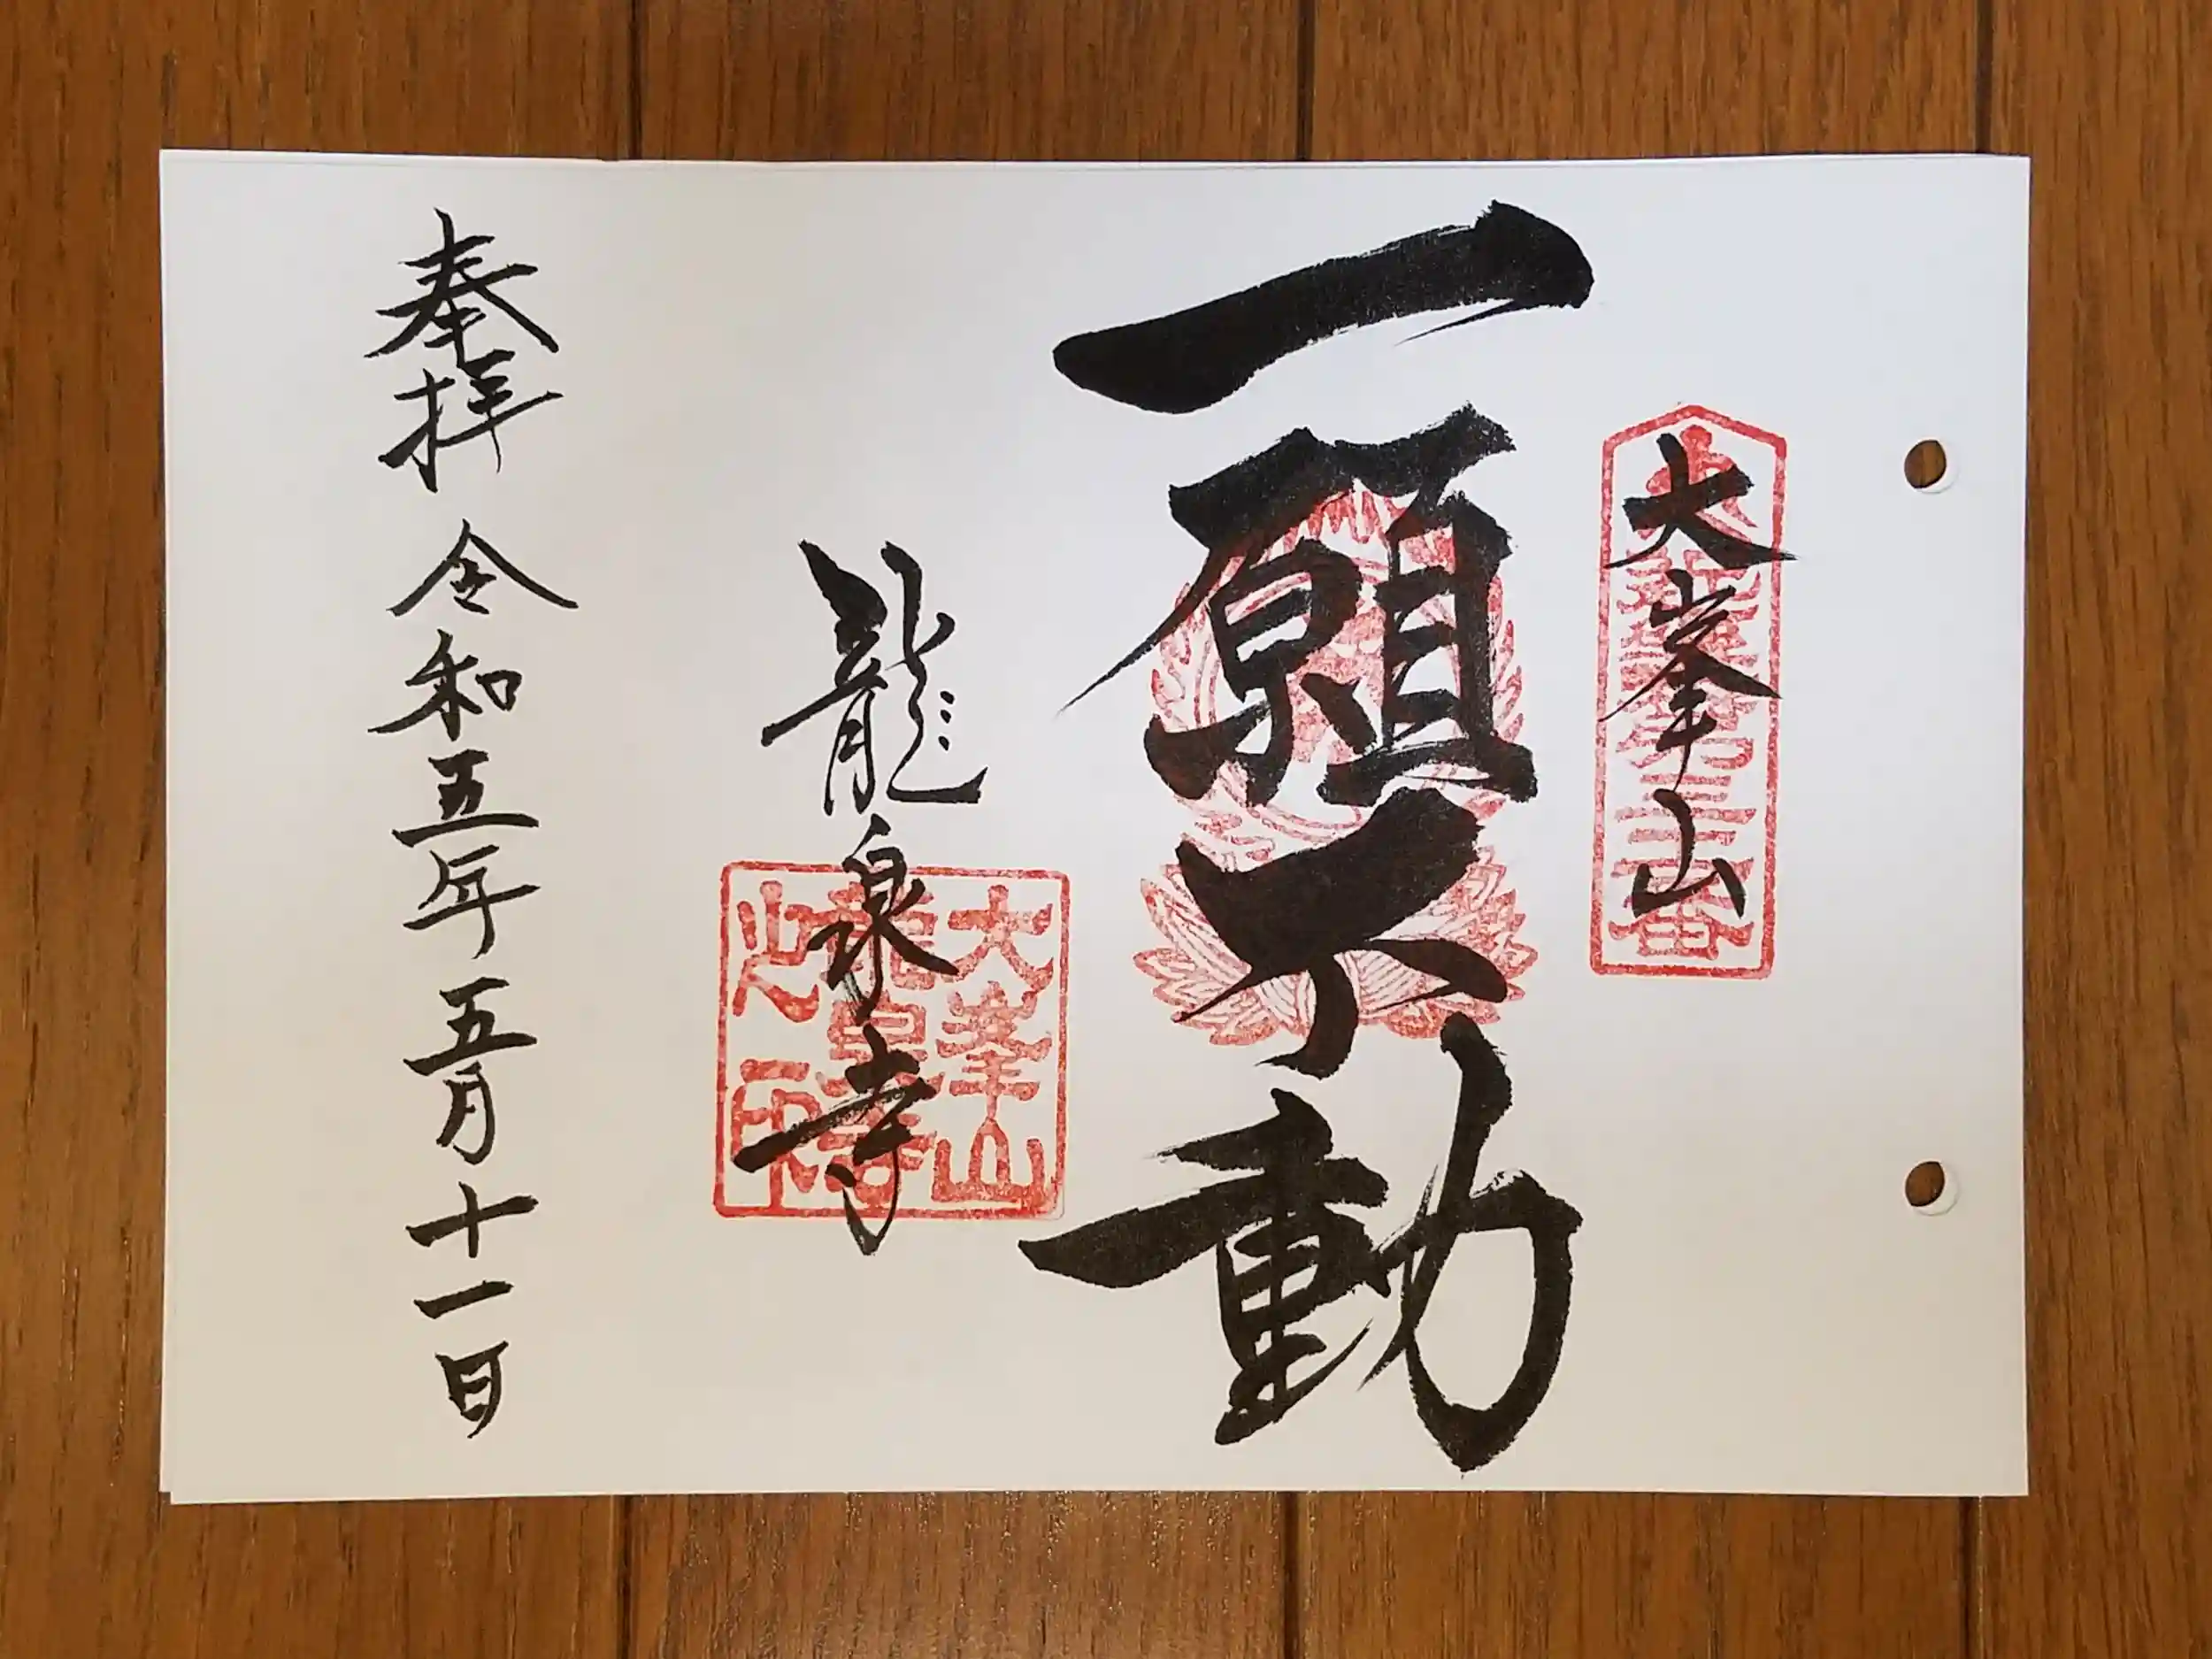 大峯山
一願不動
大峯山
龍泉寺
之印
龍泉寺
奉拝 令和五年五月十一日